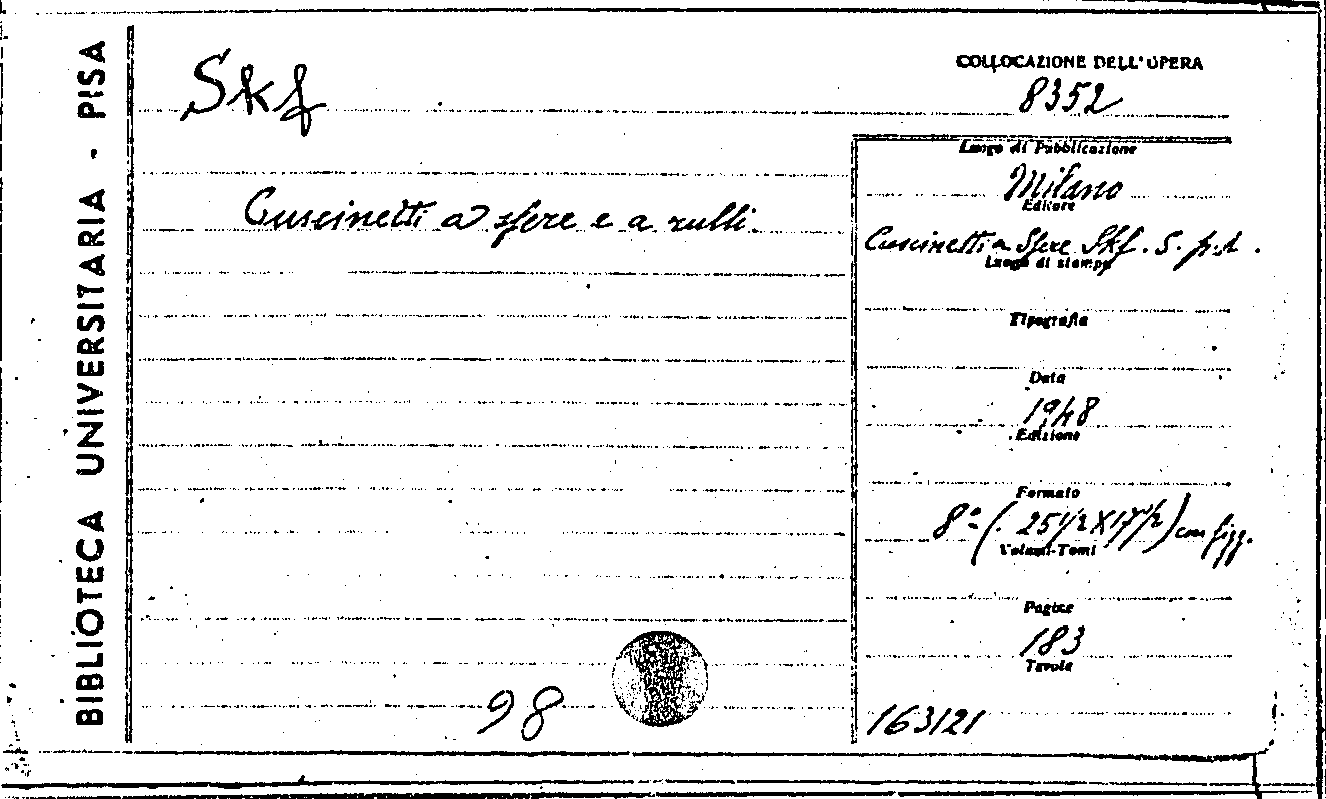 BIBLIOTECA UNIVERSITARIA - PISA
Skf
COLLOCAZIONE DELL'OPERA
8352
Cuscinetti a sfere e a rulli.
Luogo di Pubblicazione
Milano
Editore
Cuscinetti a Sfere Skf. S. p. A.
Luogo di stampa
Tipografia
Data
1948
Edizione
Formato
8º (25 1/2 X 17 1/2) con figg.
Volumi-Tomi
Pagine
183
Tavole
163121
98